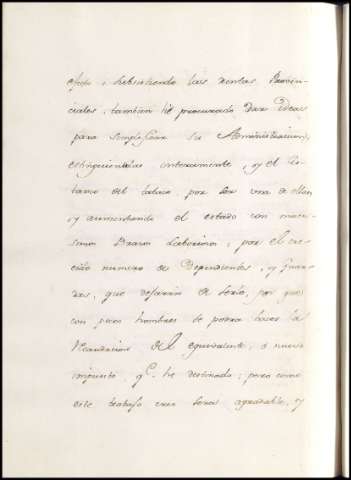 efecto; subsistiendo las rentas Provin-
ciales, tambien hé procurado dar ideas
para simplificar su Administracion,
extinguiendolas interamente, y el Es-
tanco del tabaco por ser una de ellas,
y aumentando el estado con muchi-
simos Brazos Laboriosos; por el cre-
cido numero de Dependientes, y Guar-
das, que dejarán de serlo, por que
con pocos hombres se podrá hacer la
Recaudacion del equivalente, ó nuevo
impuesto, q.e he destinado; pero como
este trabajo creo será agradable, y